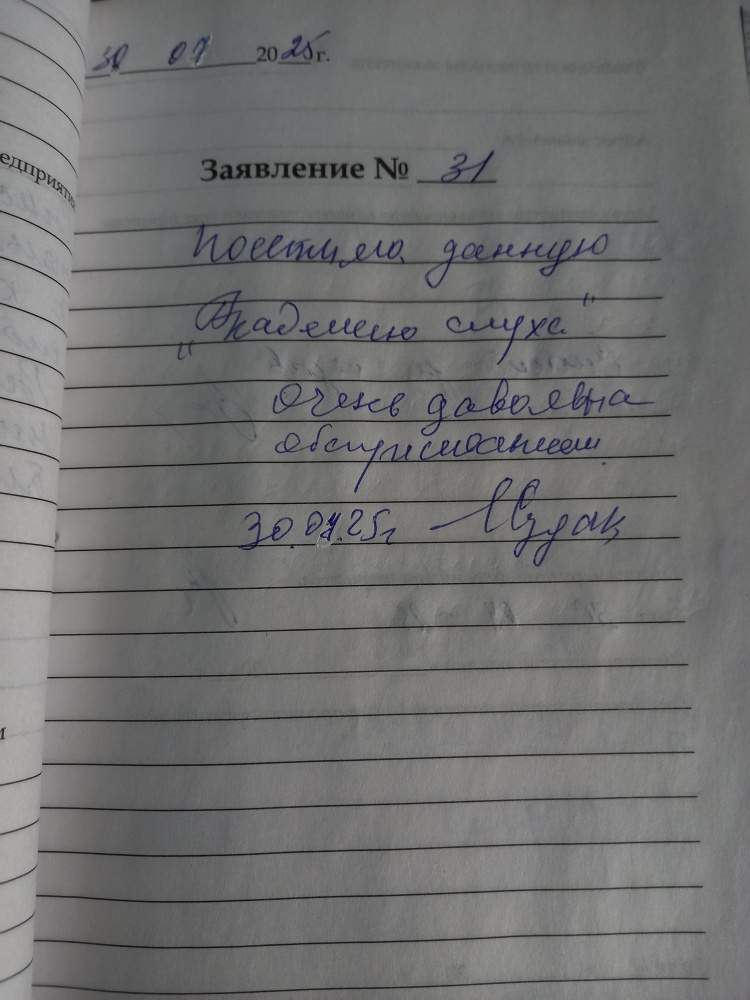 30 07 2025 г.
едприятия
Заявление № 31
Посетила данную
"Академию слуха"
очень давольна
обслуживанием
30.07.25г
и